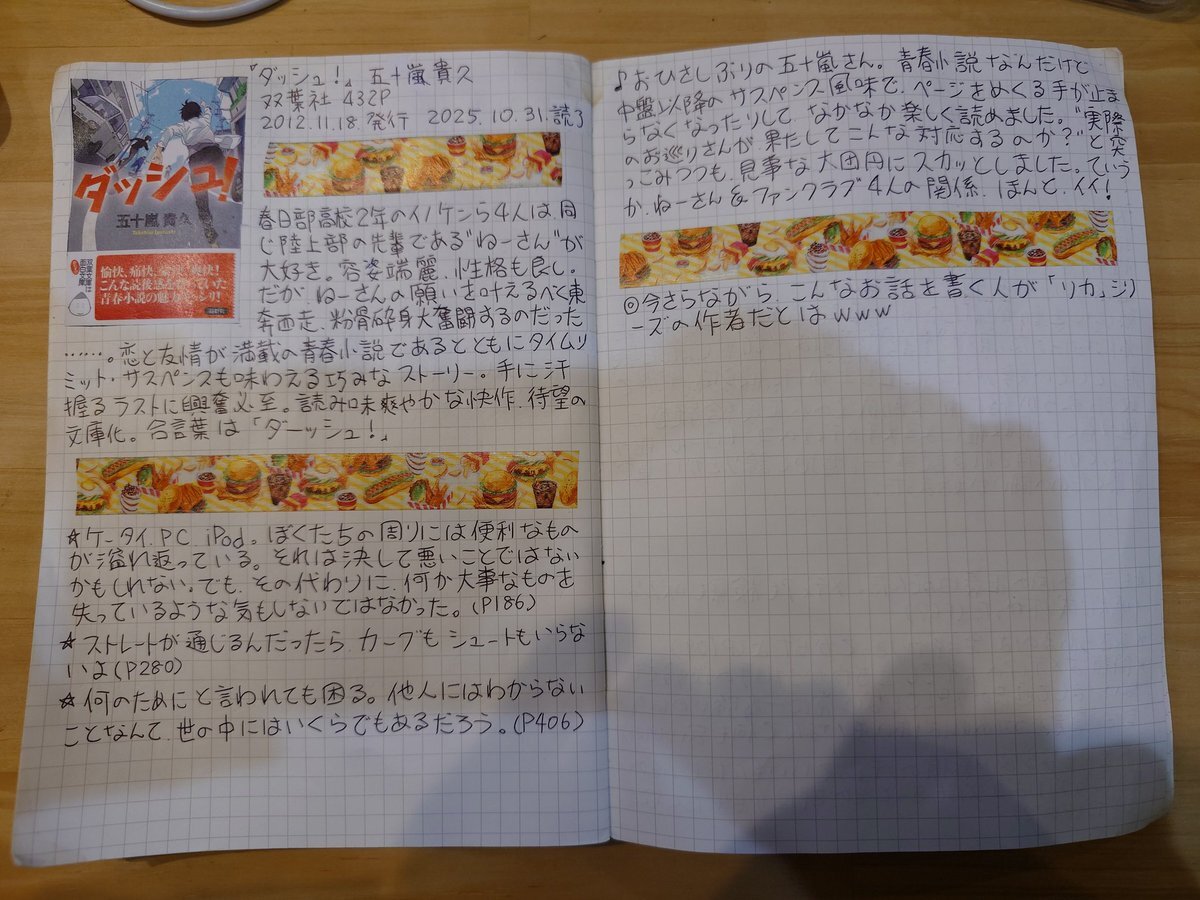 『ダッシュ!』 五十嵐貴久
双葉社 432P
2012.11.18.発行 2025.10.31.読了
ダッシュ!
五十嵐貴久
Takahisa Igarashi
双葉文庫は
面白文庫
愉快、痛快、豪快、爽快!
こんな読後感を待っていた
青春小説の魅力ギッシリ!
春日部高校2年のイノケンら4人は同
じ陸上部の先輩である“ねーさん”が
大好き。容姿端麗、性格も良し。
だが、ねーさんの願いを叶えるべく東
奔西走、粉骨砕身大奮闘するのだった
……。恋と友情が満載の青春小説であるとともにタイムリ
ミット・サスペンスも味わえる巧みなストーリー。手に汗
握るラストに興奮必至。読み味爽やかな快作、待望の
文庫化。合言葉は「ダーッシュ!」
☆ケータイ、PC、iPod。ぼくたちの周りには便利なもの
が溢れ返っている。それは決して悪いことではない
かもしれない。でも、その代わりに、何か大事なものを
失っているような気もしないではなかった。(P186)
☆ストレートが通じるんだったら、カーブもシュートもいらな
いよ(P280)
☆何のためにと言われても困る。他人にはわからない
ことなんて、世の中にはいくらでもあるだろう。(P406)
♪おひさしぶりの五十嵐さん。青春小説なんだけど
中盤以降のサスペンス風味で、ページをめくる手が止ま
らなくなったりして なかなか楽しく読めました。“実際
のお巡りさんが果たしてこんな対応するのか?”と突
っこみつつも、見事な大団円にスカッとしました。ていう
か、ねーさん&ファンクラブ4人の関係、ほんと、イイ!
◎今さらながら、こんなお話を書く人が「リカ」シリ
ーズの作者だとはwww